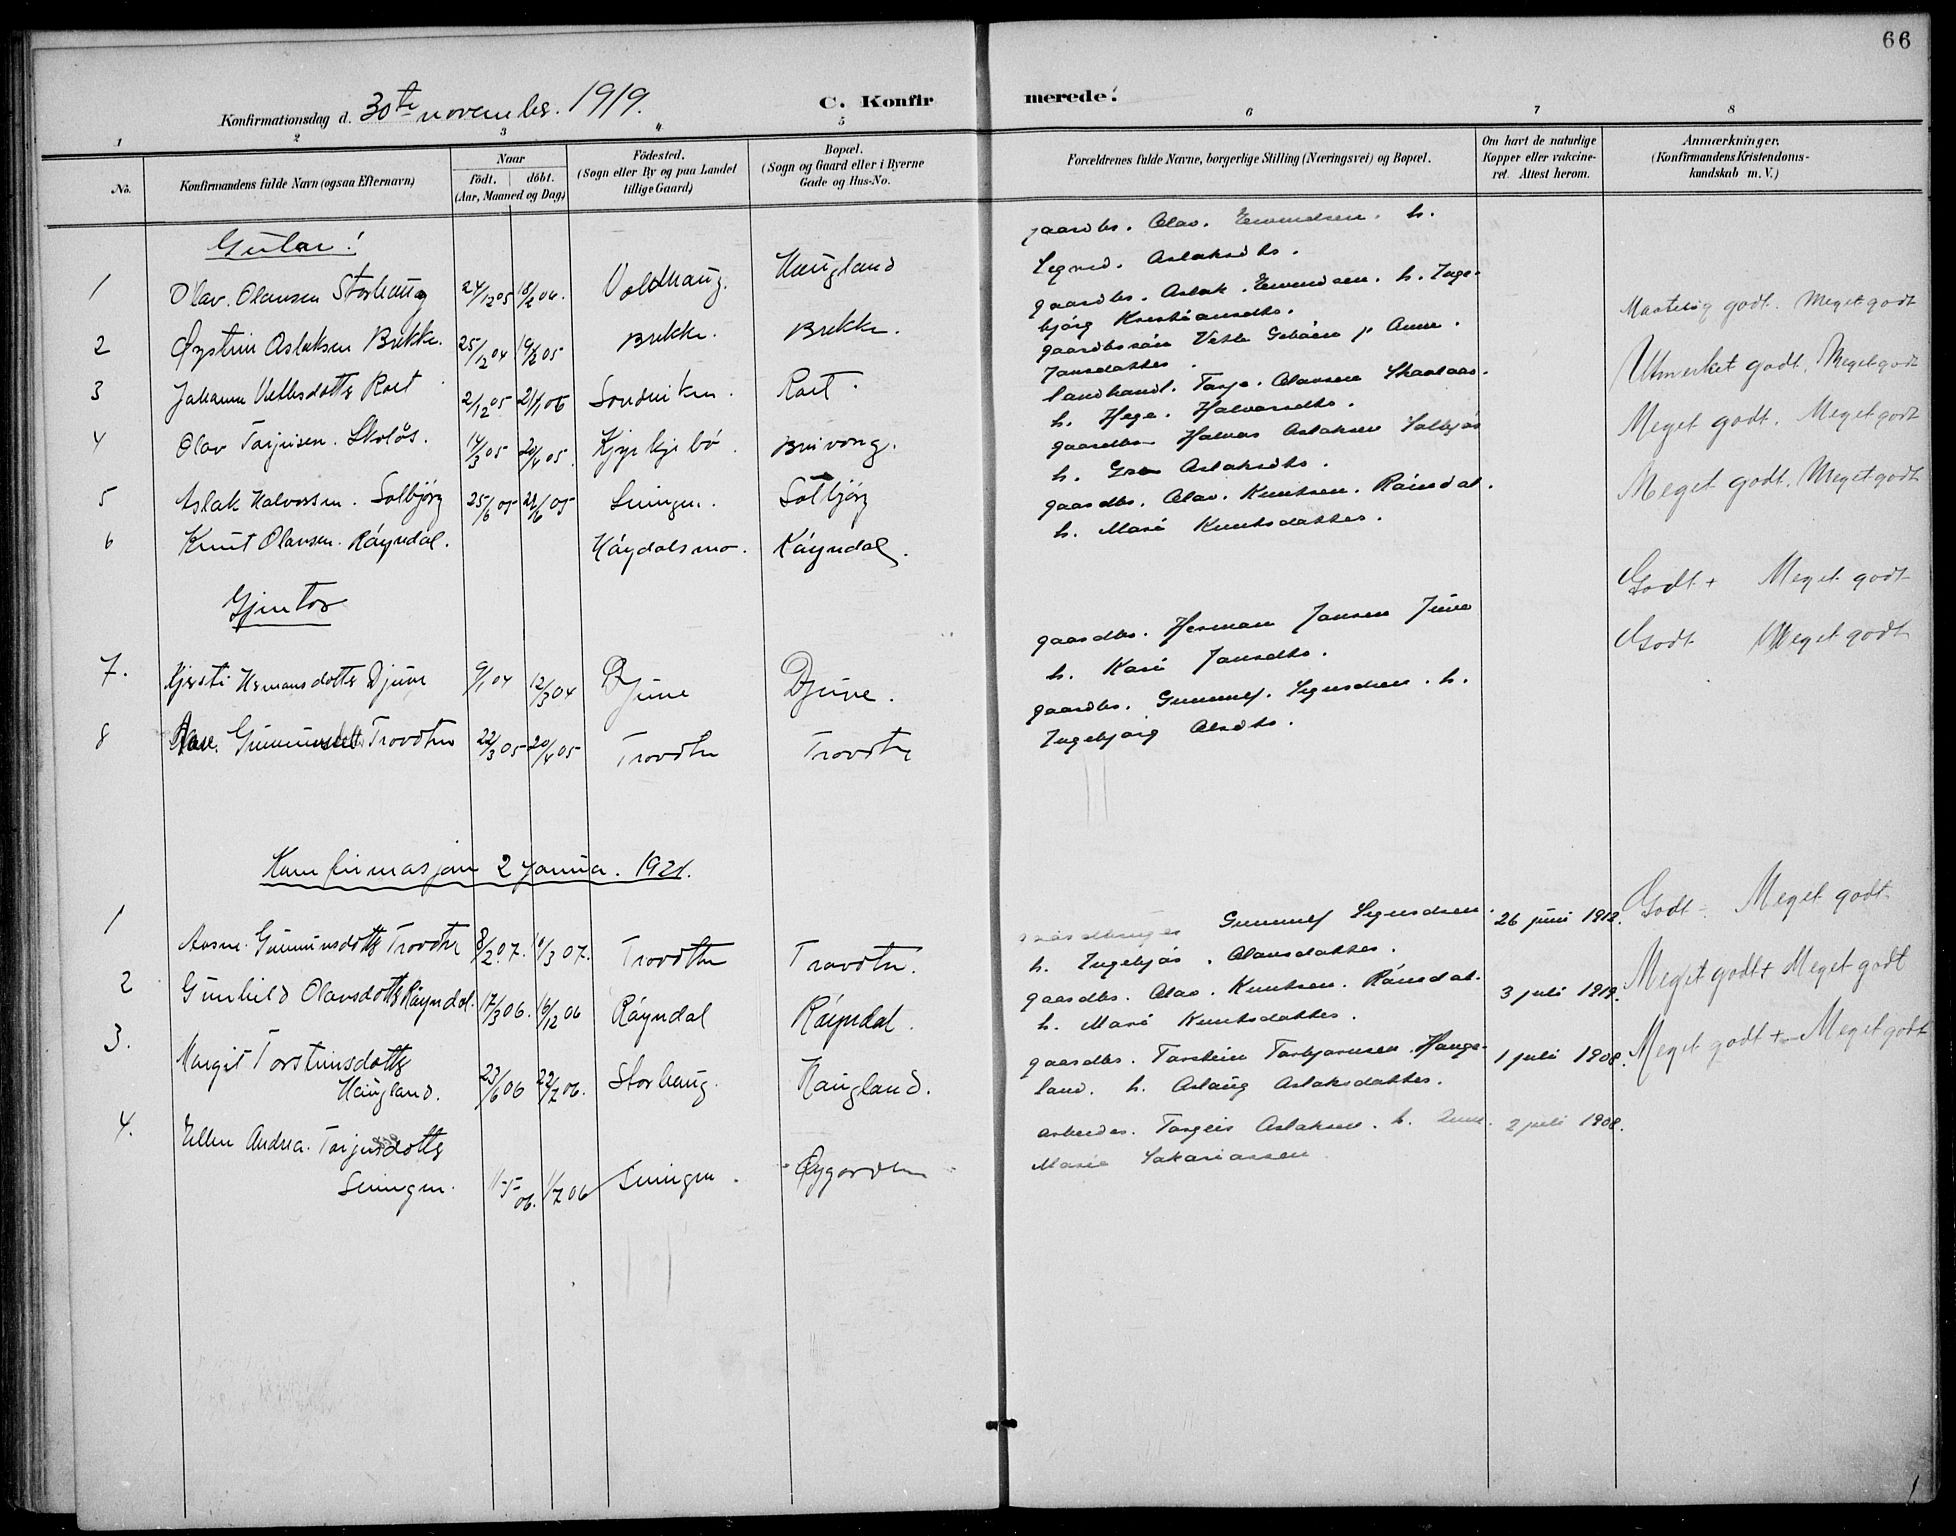 66
Konfirmationsdag d. 30te november. 1919.
C. Konfirmerede.
1 2 3 4 5 6 7 8
No.
Konfirmandens fulde Navn (ogsaa Efternavn)
Naar
födt. döbt.
(Aar, Maaned og Dag)
Födested.
(Sogn eller By og paa Landet
tillige Gaard)
Bopæl.
(Sogn og Gaard eller i Byerne
Gade og Hus-No.
Forældrenes fulde Navne, borgerlige Stilling (Næringsvei) og Bopæl.
Om havt de naturlige
Kopper eller vakcine-
ret. Attest herom.
Anmærkninger.
(Konfirmandens Kristendoms-
kundskab m. V.)
Gutar!
1 Olav. Olavsen Storhaug 24/12 05 18/2 06. Haugland
gaardbr. Olav. Eivindsen. h.
Signid. Aslaksdtr.
godt. Meget godt
2 Øystein Aslaksen Brekke. 25/12 04 19/2 05 Brekke. Brekke.
gaardbr. Aslak. Eivindsen. h. Inge-
björg Kristiansdtr.
Utmerket godt. Meget godt
3 Johann Vetlesdotter Roet 2/12 05 21/1 06 Sondviken. Roet.
gaardbrsön Vetle p Anne.
Jonsdatter.
Meget godt. Meget godt
4 Olav Tarjeisen. Skolös. 14/3 05 20/4 05. Kyrkjebö.
landhandl. Tarje. Olavsen
h. Hege. Halvorsdtr.
Meget godt. Meget godt
5 Aslak Halvorsen. Solbjörg 25/5 05 28/6 05 Liningen. Solbjörg
gaardbr Halvor Aslaksen Solbjör
h. Gro Aslaksdtr.
Godt + Meget godt
6 Knut Olavsen. Röyndal. Höydalsmo. Röyndal.
gaardbr. Olav. Knutsen. Röindal.
h. Mari Knutsdatter.
Godt Meget godt
Gjentor
7. Kjersti Hermansdotter Djuve 9/1 04 12/3 04 Djuve Djuve.
gaardbr. Herman Jonsen Juve
h. Kari Jonsdtr.
8 Gunnulvsdotter Trovdtn 22/3 05 20/4 05 Trovdtn Trovdtn
gaardbr. Gunnulf. Sigurdsen. h.
Ingebjörg Olsdtr.
Konfirmasjon 2 januar. 1921.
1 Aasne. Gunnulvsdotter Trovdtn 8/2 07. 10/3 07. Trovdtn Trovdtn.
Gunnulf Sigurdsen.
h. Ingebjör. Olavsdatter.
26 juni 1919.
Godt ÷ Meget godt
2 Gunhild Olavsdotter Röyndal. 17/3 06. 16/12 06 Röyndal Röyndal.
gaardbr. Olav. Knutsen. Röindal.
h. Mari Knutsdatter.
3 juli 1919.
Meget godt + Meget godt
3. Margit Torsteinsdotter
Haugland. 23/6 06 22/7 06. Storhaug. Haugland.
gaardbr. Torstein Torbjornsen. Hauge-
land. h. Aslaug Aslaksdatter.
1 juli 1908.
Meget godt + Meget godt
4. Ellen Andrea. Tarjeisdotter
Liningen. 11-5-06. 1/7 06 Liningen. Øygarden
arbeider. Torgeir Aslaksen. h.
Marie Sakariassen
2 juli 1908.